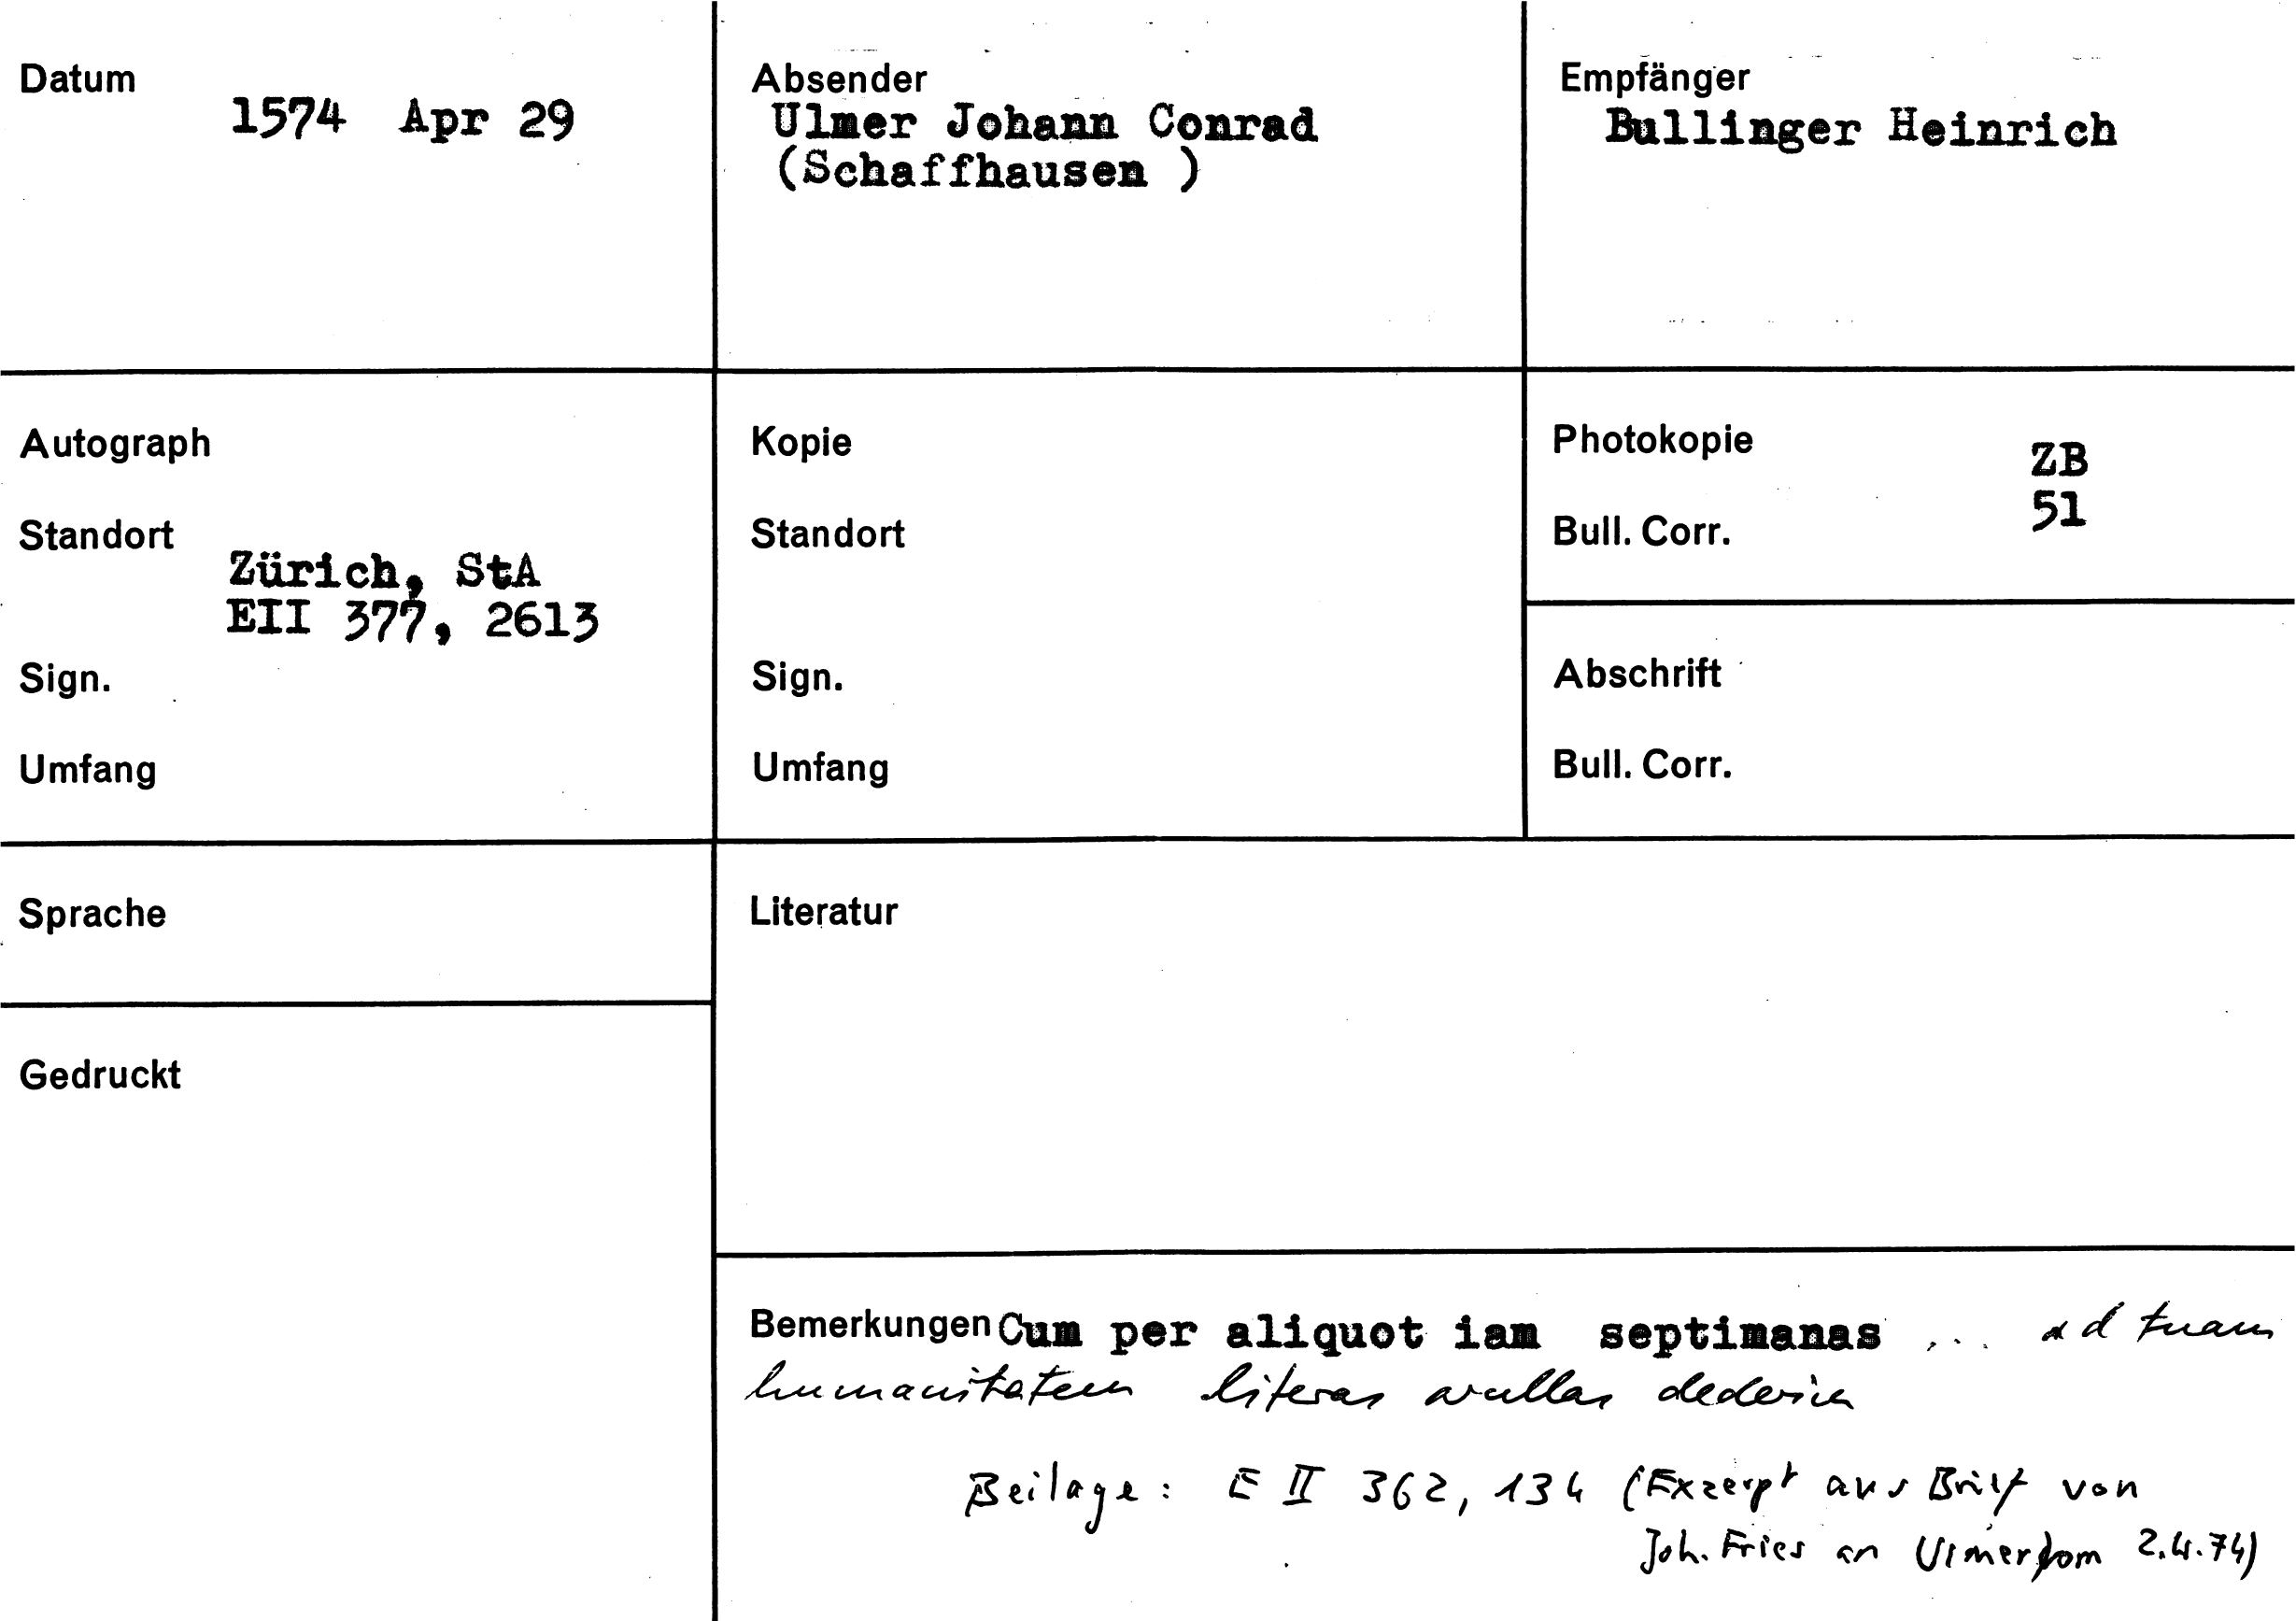 Datum
1574 Apr 29
Absender
Ulmer Johann Conrad
(Schaffhausen )
Empfänger
Bullinger Heinrich
Autograph
Standort
Zürich, StA
EII 377, 2613
Sign.
Umfang
Kopie
Standort
Sign.
Umfang
Photokopie
ZB
Bull. Corr.
51
Abschrift
Bull. Corr.
Sprache
Gedruckt
Literatur
Bemerkungen Cum per aliquot iam septimanas ... ad tuam
humanitatem literas nullas dederim
Beilage: E II 362, 134 (Exzerpt aus Brief von
Joh. Fries an Ulmer vom 2.4.74)